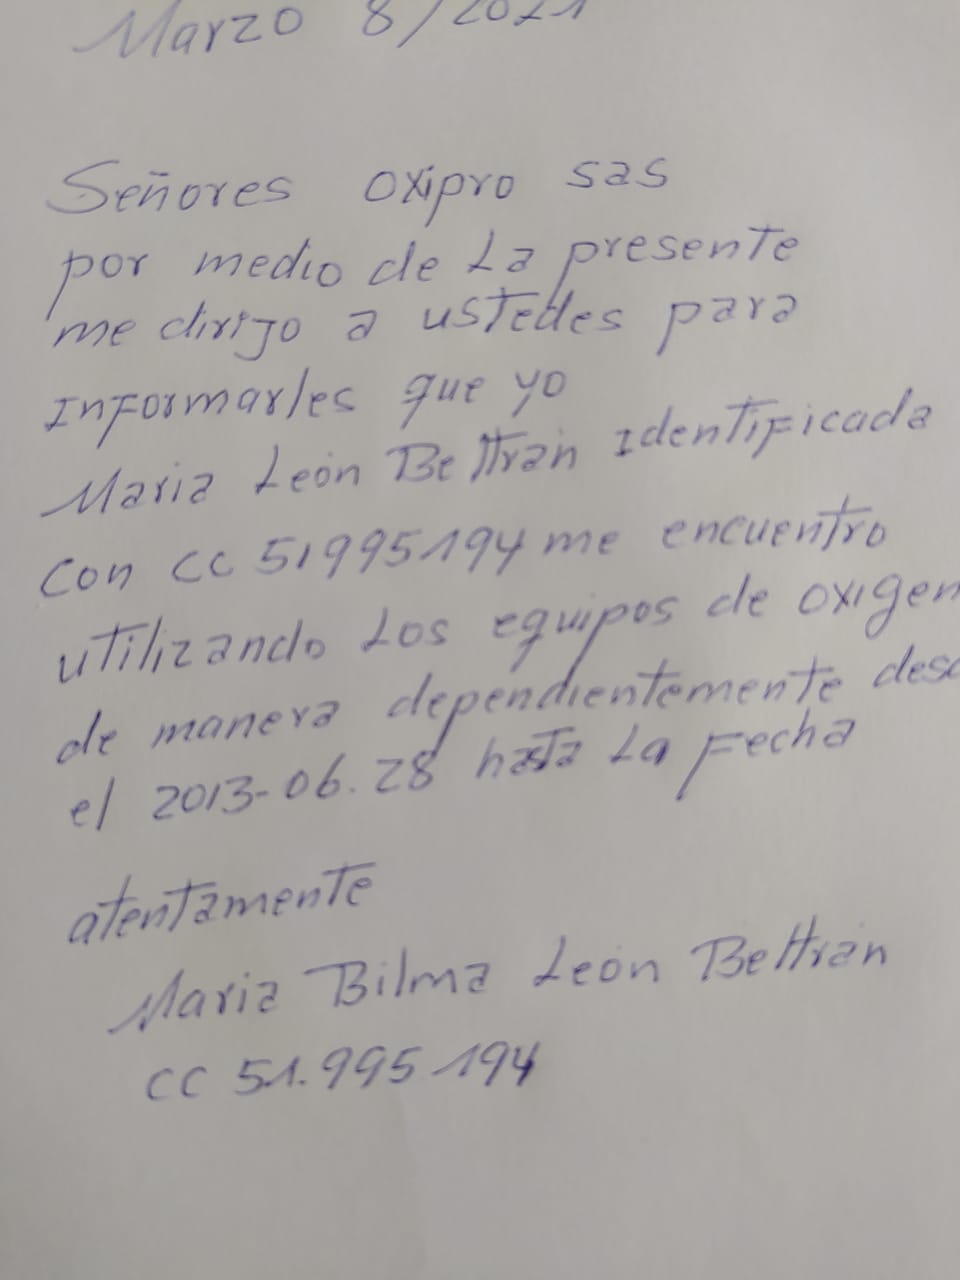 Marzo 8/2021
Señores oxipro sas
por medio de La presente
me dirijo a ustedes para
Informarles que yo
Maria León Beltrán Identificada
Con CC 51995194 me encuentro
utilizando Los equipos de oxigen
de manera dependientemente desd
el 2013-06.28 hasta La Fecha
atentamente
Maria Bilma León Beltrán
CC 51.995194